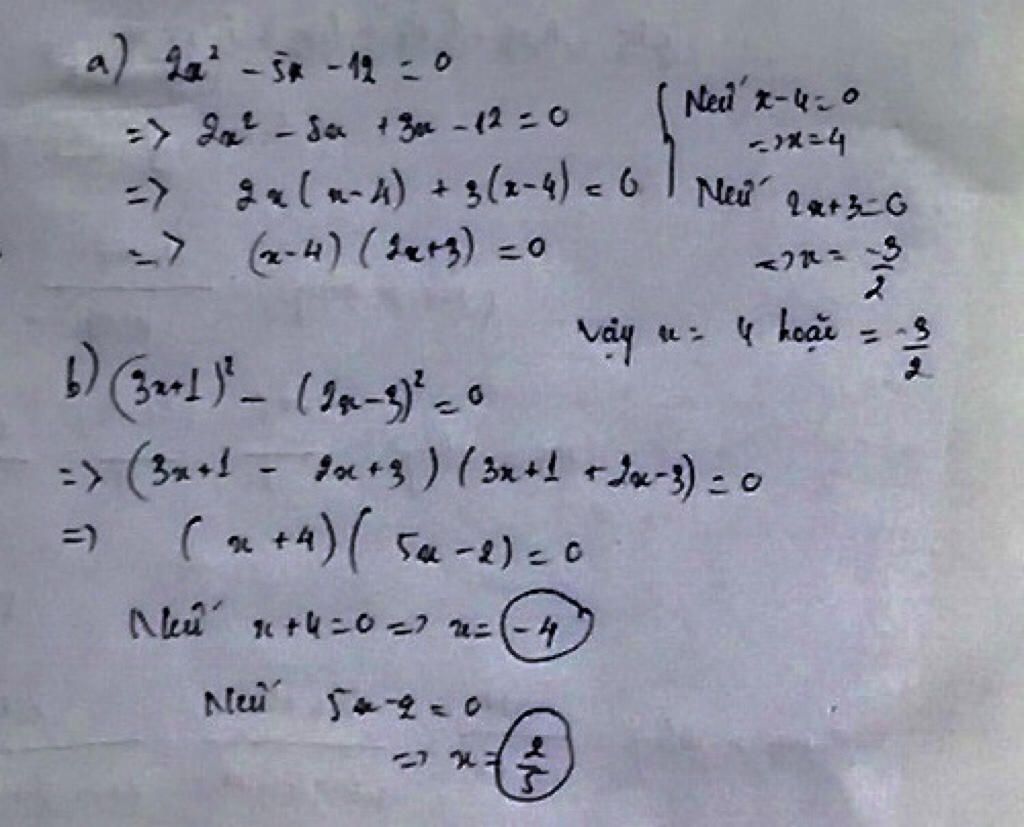 a) 2x² - 5x - 12 = 0
=> 2x² - 8x + 3x - 12 = 0
=> 2x(x-4) + 3(x-4) = 0
=> (x-4)(2x+3) = 0
Nếu x-4=0
=> x=4
Nếu 2x+3=0
=> x = -3/2
Vậy x = 4 hoặc = -3/2
b) (3x+1)² - (2x-3)² = 0
=> (3x+1 - 2x+3)(3x+1 +2x-3) = 0
=> (x+4)(5x-2) = 0
Nếu x+4=0 => x= -4
Nếu 5x-2=0
=> x= 2/5